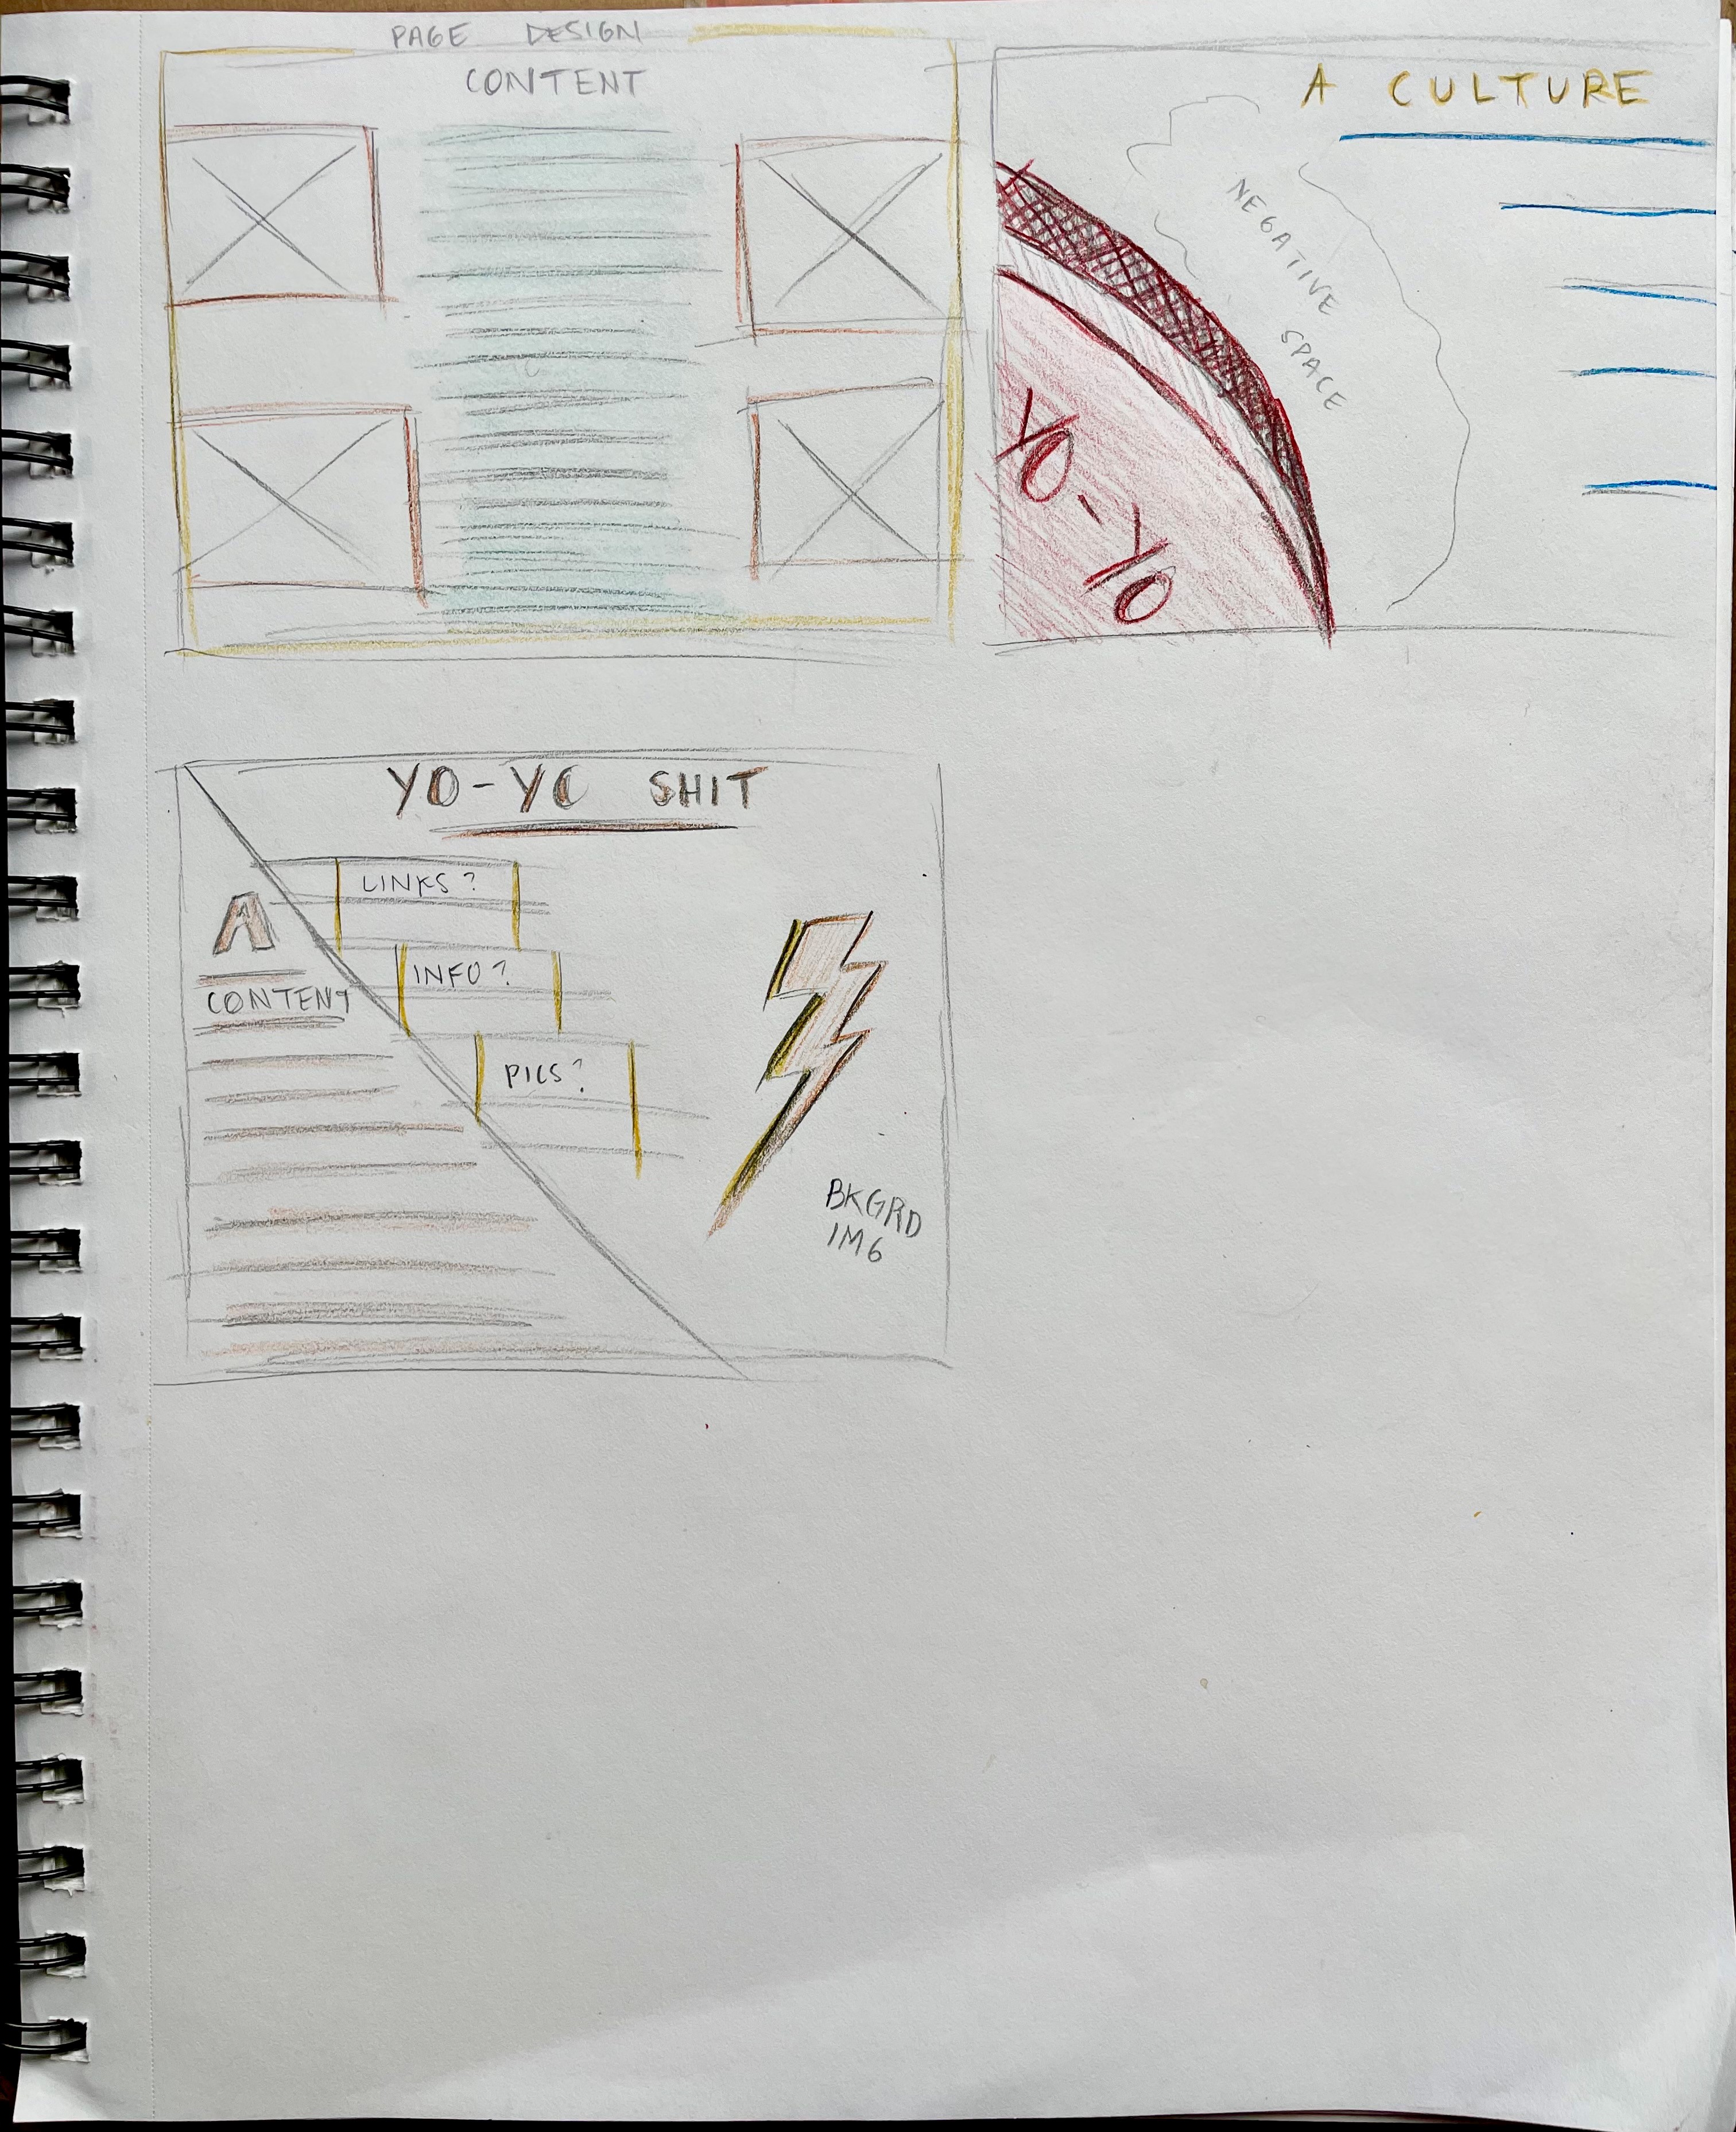 PAGE DESIGN
CONTENT
A CULTURE
NEGATIVE
SPACE
YO-YO
YO-YO SHIT
LINKS?
INFO?
PICS?
A
CONTENT
BKGRD
IMG